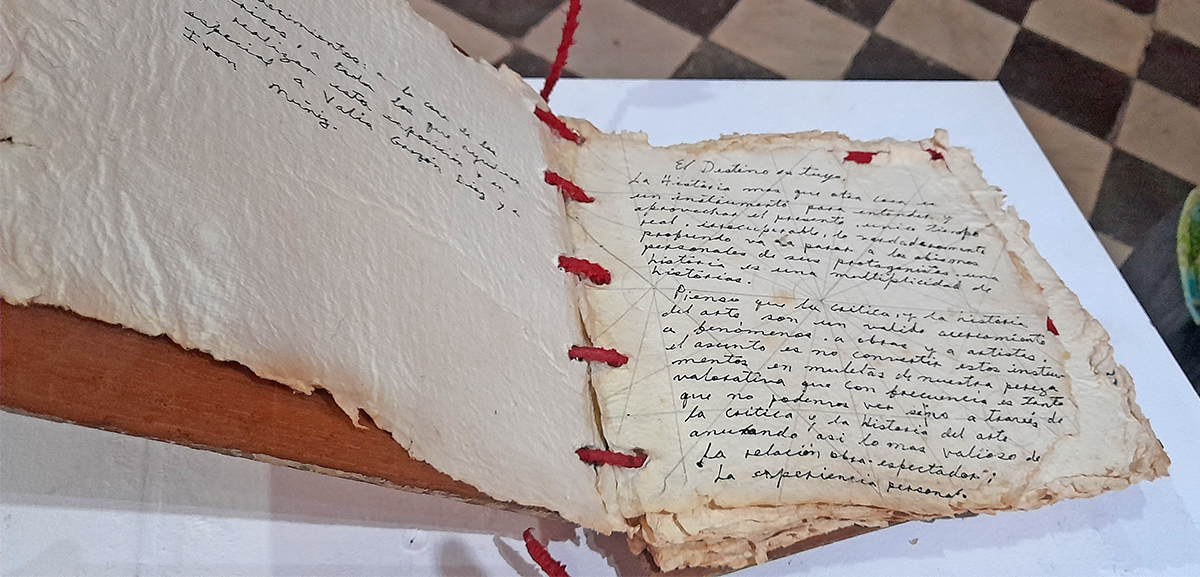 ecimientos: a la casa de la
a todos los que ayudaron
realizar esta exposición y en
especial a Valia Garzón, Luz y a
Ivan Muñiz.
El Destino es tuyo.
La Historia mas que otra cosa es
un instrumento para entender y
aprovechar el presente, unico tiempo
real. irrecuperable, lo verdaderamente
profundo va a parar a los abismos
personales de sus protagonistas. una
historia es una multiplicidad de
historias.
Pienso que la critica, y la historia
del arte son un valido acercamiento
a fenómenos. a obras y a artistas.
el asunto es no convertir estos instru
mentos, en muletas de nuestra pereza
valorativa que con frecuencia es tanta
que no podemos ver sino a través de
la critica y la Historia del arte
anulando, asi lo mas valioso de
la relación obra-espectador;
La experiencia personal.